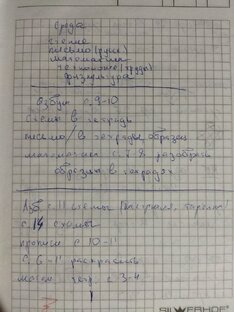 Среда
чтение
письмо (русс)
математика
технология (труд)
физкультура
Азбука с. 9-10
Схемы в тетрадь
письмо/в тетрадь, образец
математика с 7, 8 разобрать
образцы в тетрадях
Азб с 11 схемы (кастрюля, тарелка)
с 14 схемы
прописи с 10-11
с 6-11 раскрасить
матем тетр. с 3-4
SILWERHOF